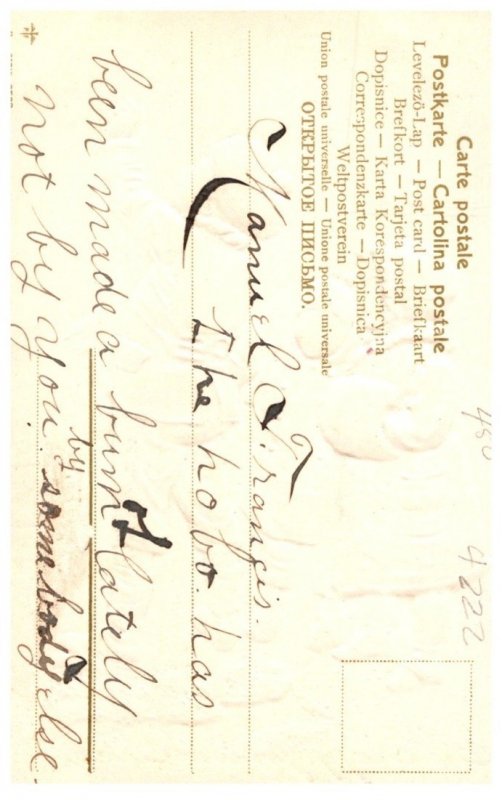 Carte postale
Postkarte — Cartolina postale
Levelező-Lap — Post card — Briefkaart
Brefkort — Tarjeta postal
Dopisnice — Karta Korespondencyjna
Correspondenzkarte — Dopisnica
Weltpostverein
Union postale universelle — Unione postale universale
ОТКРЫТОЕ ПИСЬМО.
480
4222
Manuel Frangis.
The hobo. has
been made a bum lately
by
not by you. somebody else.